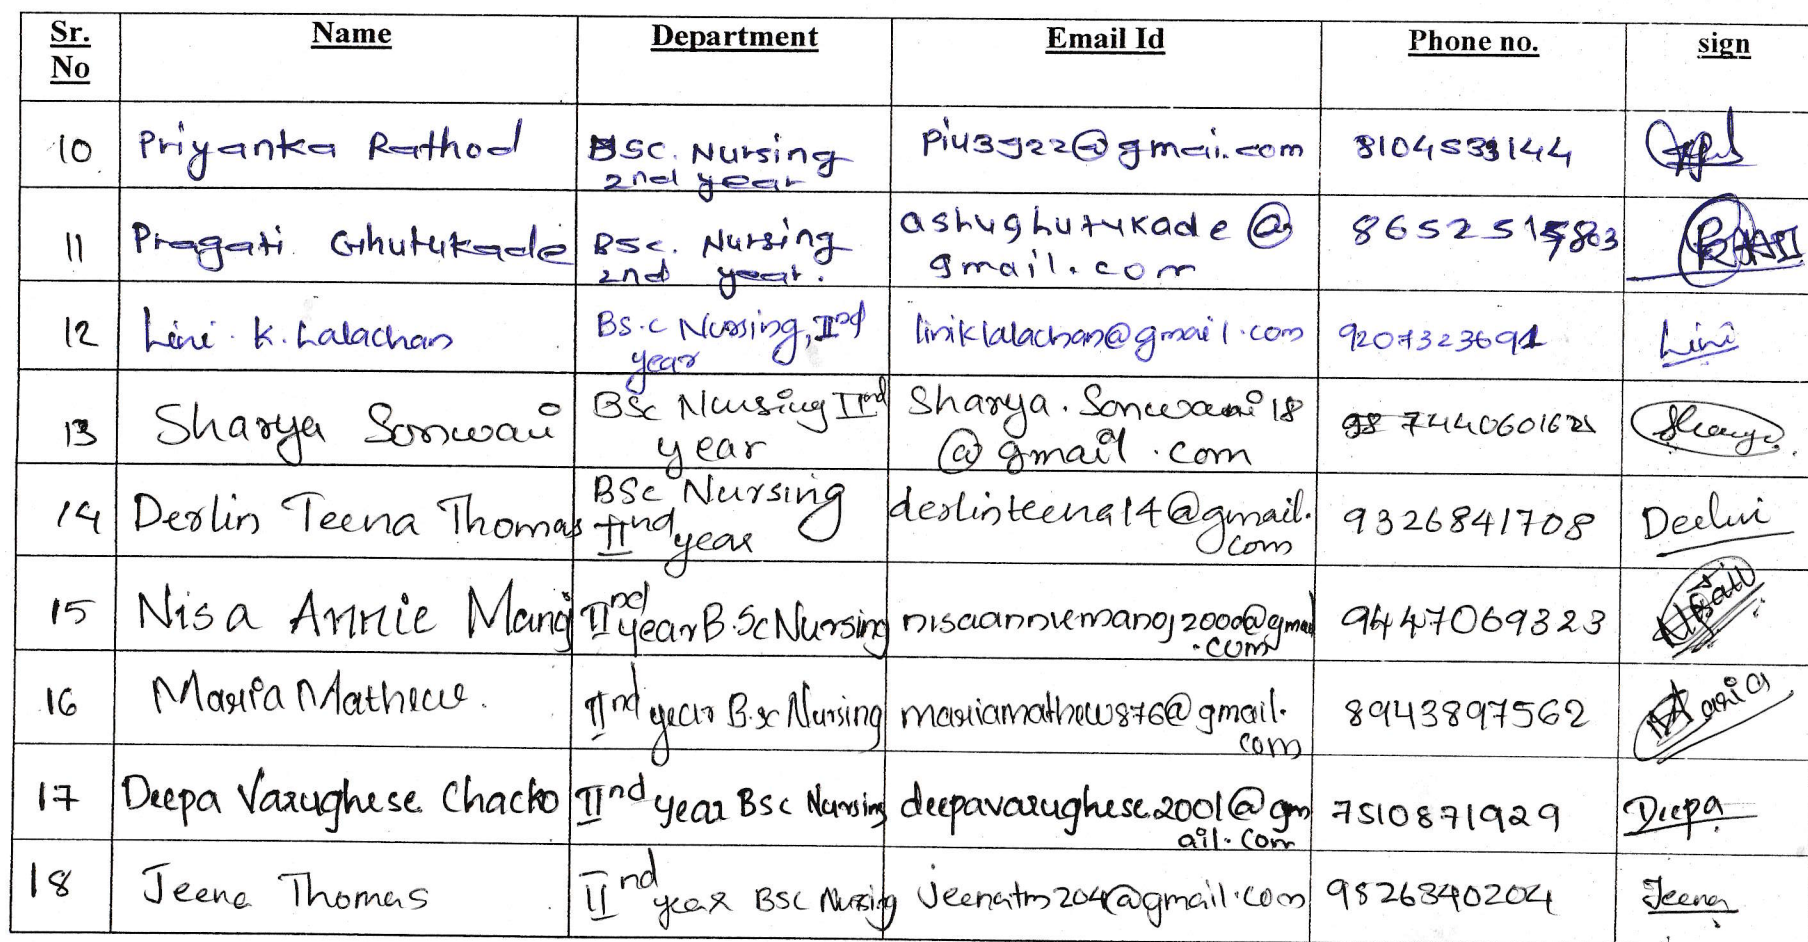 Sr. No Name Department Email Id Phone no. sign
10 Priyanka Rathod BSC. Nursing 2nd year piu3922@gmai.com
11 Pragati Ghutukade BSc. Nursing 2nd year. ashughutukade@ gmail.com
12 Lini K. Lalachan Bs.c Nursing, IInd year liniklalachan@gmail.com 9207323691 Lini
13 Sharya Sonwani BSc Nursing IInd year Sharya.Sonwani18 @gmail.com Sharya
14 Derlin Teena Thomas BSc Nursing IInd year derlinteena14@gmail. com 9326841708
15 Nisa Annie Manoj IInd year B.Sc Nursing nisaanniemanoj2000@gmail .com 9447069323
16 Maria Mathew. IInd year B.sc Nursing mariamathew876@gmail. com 8943897562 Maria
17 Deepa Varughese Chacko IInd year BSc Nursing deepavarughese2001@gm ail.com 7510871929 Deepa
18 Jeena Thomas IInd year BSC Nursing jeenatm204@gmail.com 9826340204 Jeena